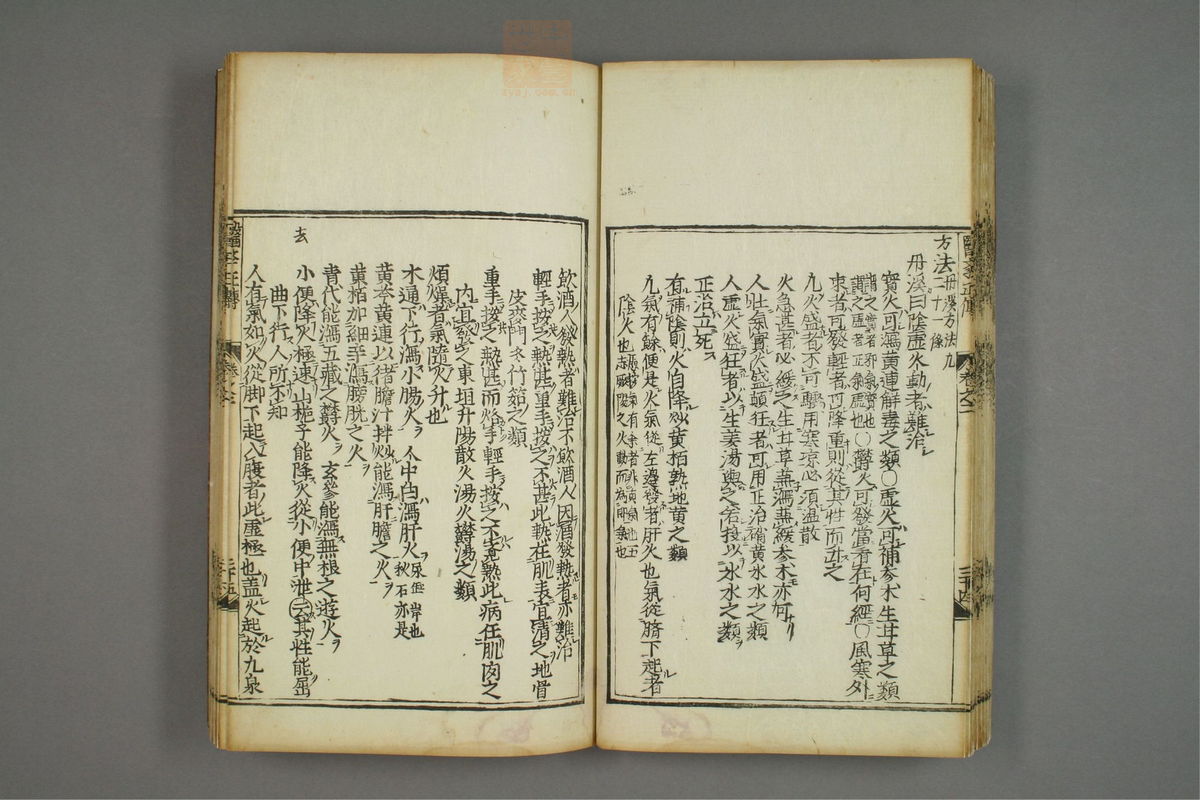 方法 丹溪方法 凡二十條
丹溪曰陰虛火動者難治
實火可瀉黃連解毒之類○虛火可補參朮生甘草之類
謂之實者邪氣實也謂之虛者正氣虛也○欝火可發當看在何經○風寒外
束者可發輕者可降重則從其性而升之
凡火盛者不可驟用寒凉必須溫散
火急甚者必緩之生甘草兼瀉兼緩參朮亦可
人壯氣實火盛顛狂者可用正治硝黃氷水之類
人虛火盛狂者以生姜湯與之若投以氷水之類
正治立死
有補陰則火自降炒黃栢熟地黃之類
凡氣有餘便是火氣從左邊發者肝火也氣從臍下起者
陰火也
飲酒人發熱者難治不飲酒人因酒發熱者亦難治
輕手按之熱甚重手按之不甚此熱在肌表宜清之地骨
皮麥門冬竹茹之類
重手按之熱甚而烙手輕手按之不覺熱此病在肌肉之
内宜發之東垣升陽散火湯火欝湯之類
煩燥者氣隨火升也
木通下行瀉小腸火 人中白瀉肝火 尿垽岸也秋石亦是
黃芩黃連以猪膽汁拌炒能瀉肝膽之火
黃栢加細辛瀉膀胱之火
青代能瀉五藏之欝火 玄參能瀉無根之遊火
小便降火極速山梔子能降火從小便中泄去其性能屈
曲下行人所不知
人有氣如火從脚下起入腹者此虛極也盖火起於九泉
去